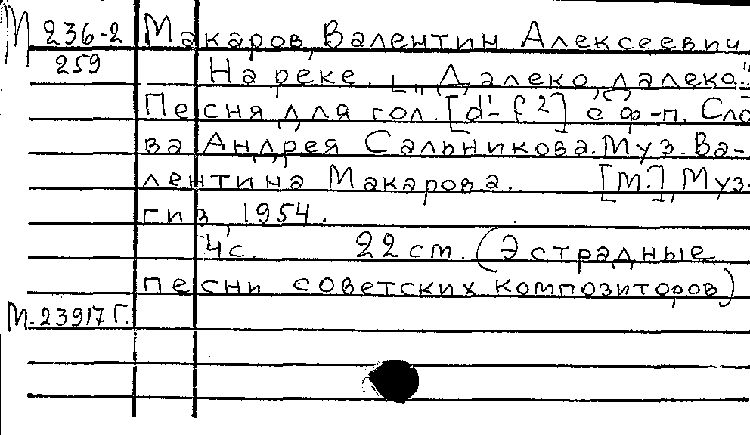 М 236-2 Макаров, Валентин Алексеевич.
259 На реке. „Далеко, далеко..."
Песня для гол. [d¹-f²] с ф-п. Сло
ва Андрея Сальникова. Муз. Ва-
лентина Макарова. [М.], Муз-
гиз, 1954.
4 с. 22 cm. (Эстрадные
песни советских композиторов)
М-23917 Г.